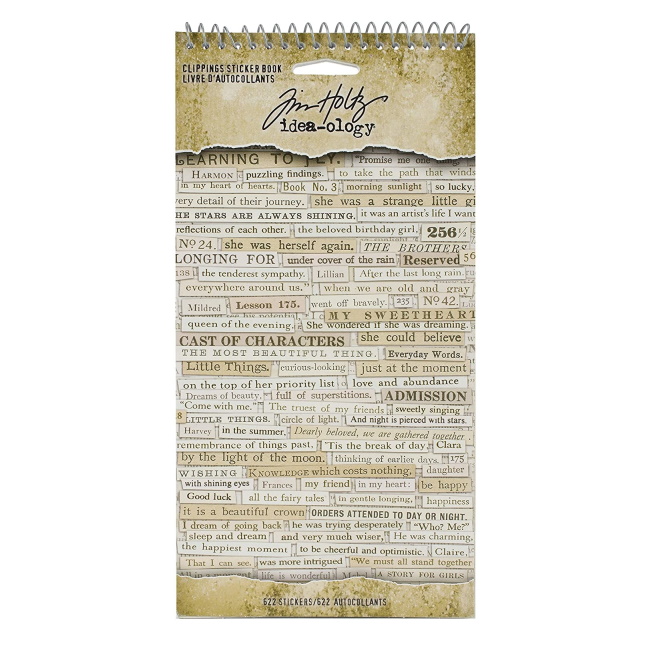 CLIPPINGS STICKER BOOK
LIVRE D'AUTOCOLLANTS
Tim Holtz
idea-ology
LEARNING TO FLY. "Promise me one
HARMON puzzling findings. to take the path that winds
in my heart of hearts. Book No. 3 morning sunlight so lucky.
very detail of their journey. she was a strange little gi
HE STARS ARE ALWAYS SHINING. it was an artist's life I want
reflections of each other. the beloved birthday girl, 256½
No 24. she was herself again. THE BROTHERS
LONGING FOR under cover of the rain Reserved 56
138 the tenderest sympathy. Lillian After the last long rain.
everywhere around us." when we are old and gray
Mildred Lesson 175. went off bravely. 235 No 42.
MY SWEETHEART
queen of the evening. She wondered if she was dreaming.
CAST OF CHARACTERS she could believe
THE MOST BEAUTIFUL THING. Everyday Words.
Little Things. curious-looking just at the moment
on the top of her priority list love and abundance
Dreams of beauty. full of superstitions. ADMISSION
"Come with me." The truest of my friends sweetly singing
8 LITTLE THINGS. circle of light. And night is pierced with stars.
Harvey in the summer. Dearly beloved, we are gathered together
remembrance of things past. 'Tis the break of day. Clara
by the light of the moon. thinking of earlier days. 175
WISHING KNOWLEDGE which costs nothing. daughter
with shining eyes Frances my friend in my heart: be happy
Good luck all the fairy tales in gentle longing, happiness
it is a beautiful crown ORDERS ATTENDED TO DAY OR NIGHT.
I dream of going back he was trying desperately "Who? Me?"
sleep and dream and very much wiser, He was charming.
the happiest moment to be cheerful and optimistic. Claire,
That I can see. was more intrigued "We must all stand together
life is wonderful A STORY FOR GIRLS
622 STICKERS/622 AUTOCOLLANTS